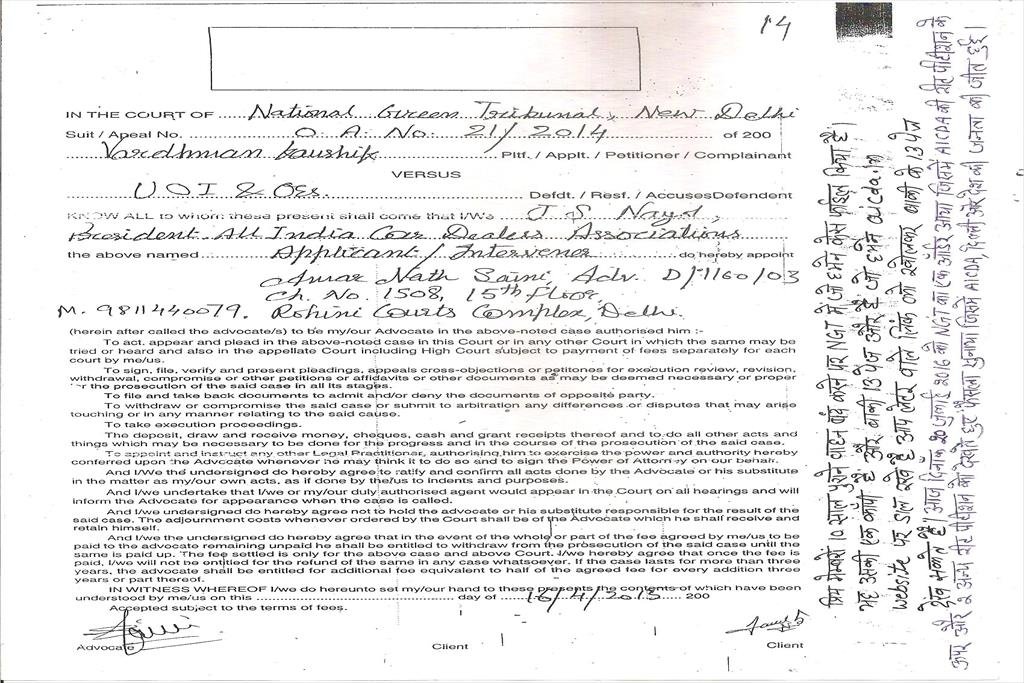 14
IN THE COURT OF National Green Tribunal, New Delhi
Suit / Apeal No. O. A. No. 21/2014 of 200
Vardhman Kaushik Pltf. / Applt. / Petitioner / Complainant
VERSUS
U O I & Ors. Defdt. / Resf. / AccusesDefendent
KNOW ALL to whom these present shall come that I/We J. S. Nayol,
President All India Car Dealers Associations
the above named Applicant / Intervener do hereby appoint
Amar Nath Saini, Adv. D/1160/03
Ch. No. 1508, 15th Floor,
M. 9811440079. Rohini Courts Complex, Delhi.
(herein after called the advocate/s) to be my/our Advocate in the above-noted case authorised him :-
To act. appear and plead in the above-noted case in this Court or in any other Court in which the same may be
tried or heard and also in the appellate Court including High Court subject to payment of fees separately for each
court by me/us.
To sign, file, verify and present pleadings, appeals cross-objections or petitones for execution review, revision,
withdrawal, compromise or other petitions or affidavits or other documents as may be deemed necessary or proper
for the prosecution of the said case in all its stages.
To file and take back documents to admit and/or deny the documents of opposite party.
To withdraw or compromise the said case or submit to arbitration any differences or disputes that may arise
touching or in any manner relating to the said cause.
To take execution proceedings.
The deposit, draw and receive money, cheques, cash and grant receipts thereof and to do all other acts and
things which may be necessary to be done for the progress and in the course of the prosecution of the said case.
To appoint and instruct any other Legal Practitioner, authorising him to exercise the power and authority hereby
conferred upon the Advocate whenever he may think it to do so and to sign the Power of Attorney on our behalf.
And I/We the undersigned do hereby agree to ratify and confirm all acts done by the Advocate or his substitute
in the matter as my/our own acts, as if done by the/us to indents and purposes.
And I/we undertake that I/we or my/our duly authorised agent would appear in the Court on all hearings and will
inform the Advocate for appearance when the case is called.
And I/we undersigned do hereby agree not to hold the advocate or his substitute responsible for the result of the
said case. The adjournment costs whenever ordered by the Court shall be of the Advocate which he shall receive and
retain himself.
And I/we the undersigned do hereby agree that in the event of the whole or part of the fee agreed by me/us to be
paid to the advocate remaining unpaid he shall be entitled to withdraw from the prosecution of the said case until the
same is paid up. The fee settled is only for the above case and above Court. I/we hereby agree that once the fee is
paid, I/we will not be entitled for the refund of the same in any case whatsoever. If the case lasts for more than three
years, the advocate shall be entitled for additional fee equivalent to half of the agreed fee for every addition three
years or part thereof.
IN WITNESS WHEREOF I/we do hereunto set my/our hand to these presents the contents of which have been
understood by me/us on this day of 16/4/2015 200
Accepted subject to the terms of fees.
Advocate Client Client
प्रिय मेम्बरों 10 साल पुराने वाहन बंद करने पर NGT में जो हमने केस फाइल किया है।
यह उसकी एक कॉपी है और बाकी 13 पेज और है जो हमने aicda.in
website पर डाल रखे है आप लेटर वाले लिंक को खोलकर बाकी के 13 पेज
देख सकते है। आज दिनांक 20 जुलाई 2016 को NGT का एक ऑर्डर आया जिसमें AICDA की रीट पीटीशन के
ऊपर और 2 अन्य रीट पीटीशन को देखते हुए फैसला सुनाया जिसमें AICDA, दिल्ली और देश की जनता की जीत हुई।